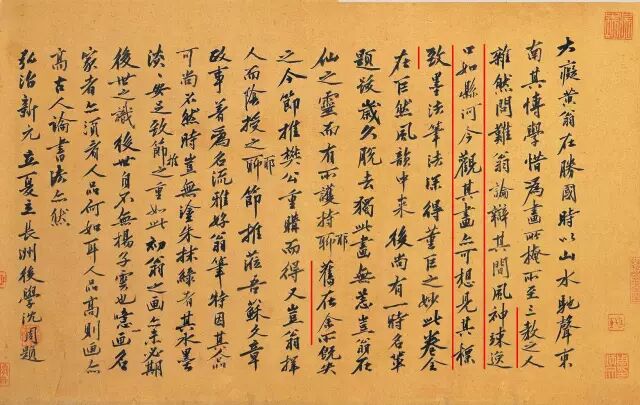 大癡黃翁在勝國時以山水馳聲東
南其博學惜為畫所掩所至三教之人
雜然問難翁論辯其間風神竦逸
口如縣河今觀其畫亦可想見其標
致墨法筆法深得董巨之妙此卷全
在巨然風韻中來後尚有一時名輩
題跋歲久脫去獨此畫無恙豈翁在
仙之靈而有所護持耶舊在余所既失
之今節推樊公重購而得又豈翁擇
人而陰授之耶節推蒞吾蘇文章
政事著為名流雅好翁筆特因其人品
可尚不然時豈無塗朱抹綠者其水墨
淡淡安足致節推之重如此初翁之画亦未必期
後世之識後世自不無楊子雲也噫画名
家者亦須看人品何如耳人品高則画亦
高古人論書法亦然
弘治新元立夏立長洲後學沈周題